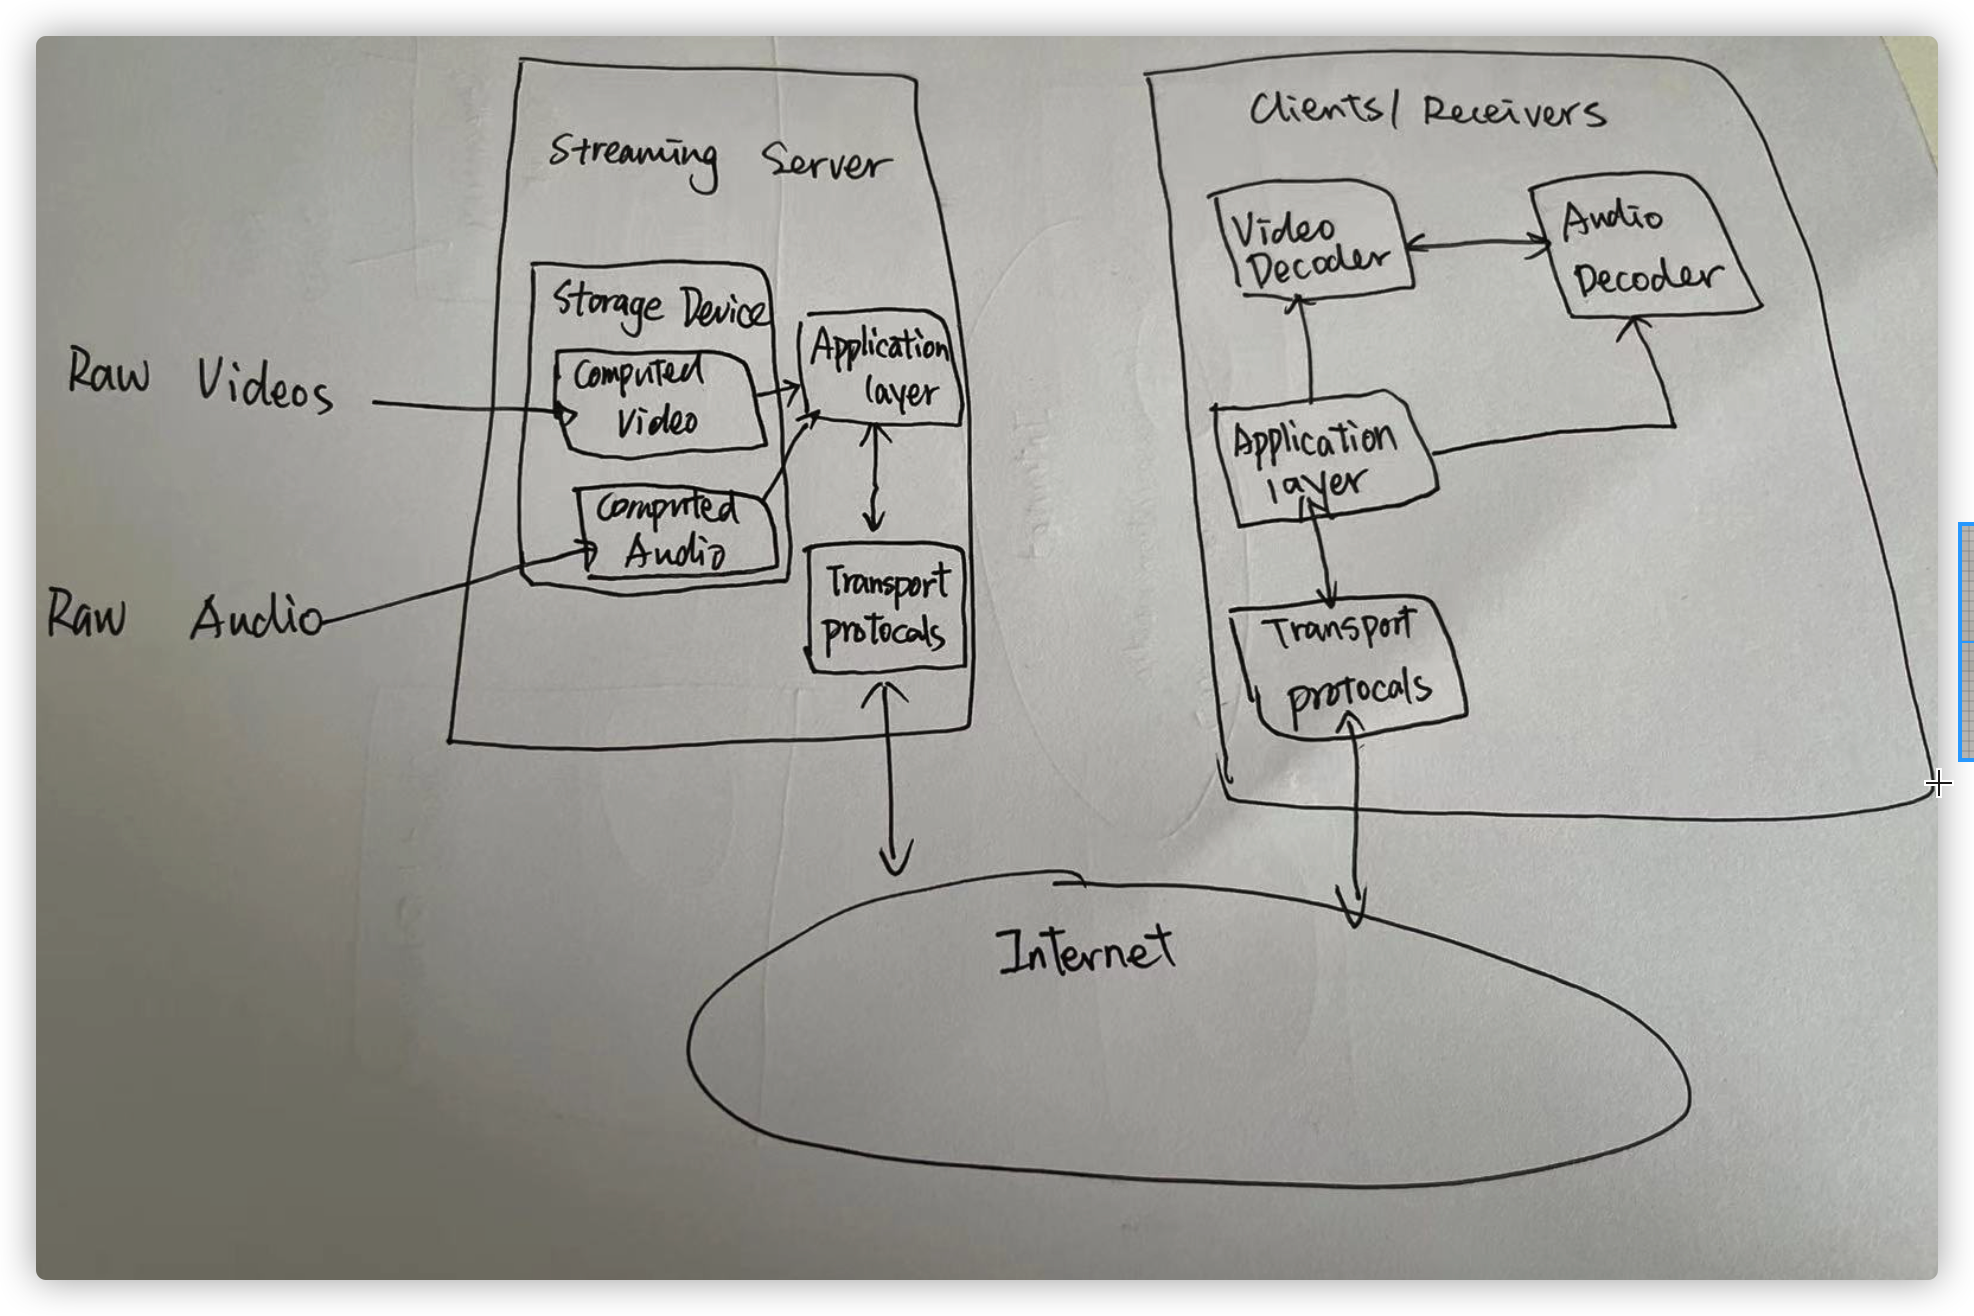 Streaming Server
Storage Device
Computed
Video
Computed
Audio
Application
layer
Transport
protocals
Raw Videos
Raw Audio
Clients/Receivers
Video
Decoder
Audio
Decoder
Application
layer
Transport
protocals
Internet